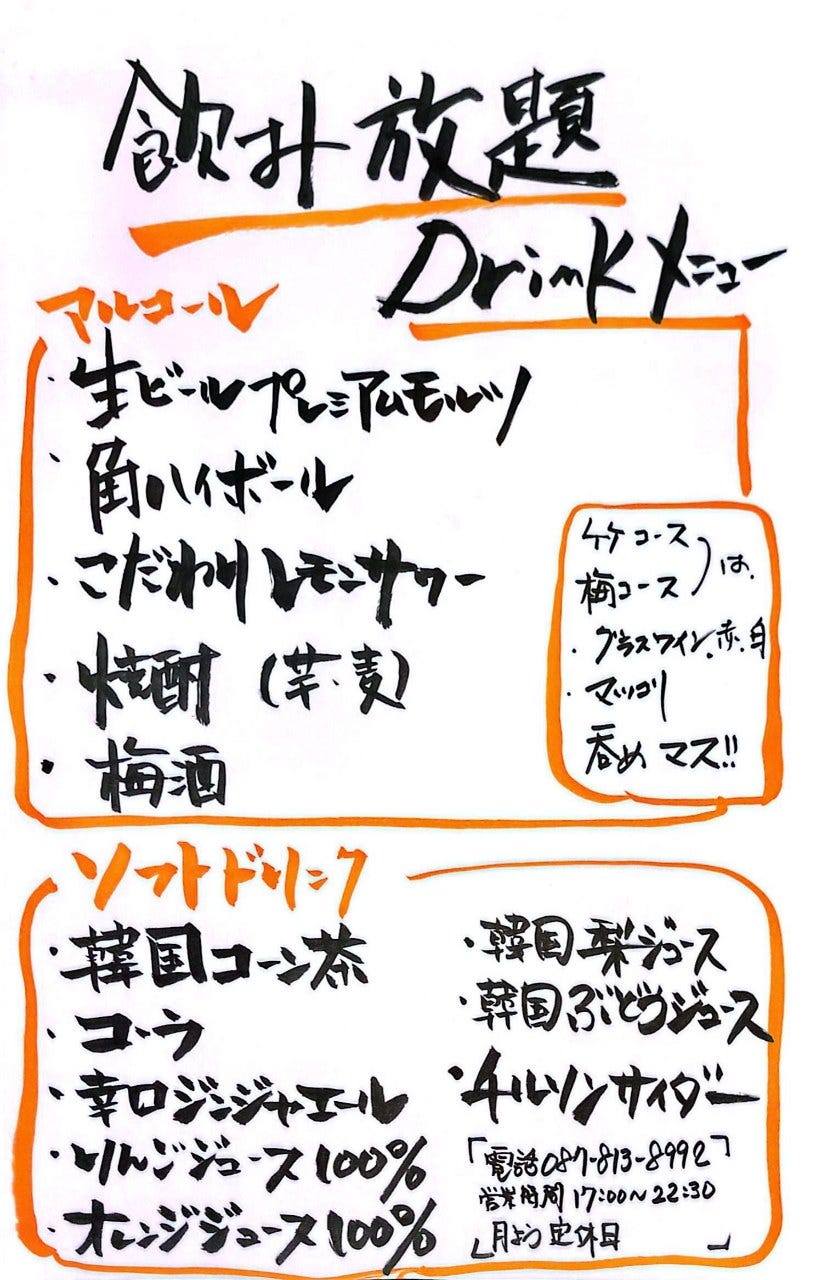 飲み放題
Drinkメニュー
アルコール
・生ビールプレミアムモルツ
・角ハイボール
・こだわりレモンサワー
・焼酎(芋・麦)
・梅酒
竹コース
梅コース)は、
・グラスワイン.赤.白
・マッコリ
呑めマス!!
ソフトドリンク
・韓国コーン茶
・コーラ
・辛口ジンジャエール
・りんごジュース100%
・オレンジジュース100%
・韓国梨ジュース
・韓国ぶどうジュース
・チルソンサイダー
「電話087-813-8992
営業時間17:00〜22:30
月よう定休日」